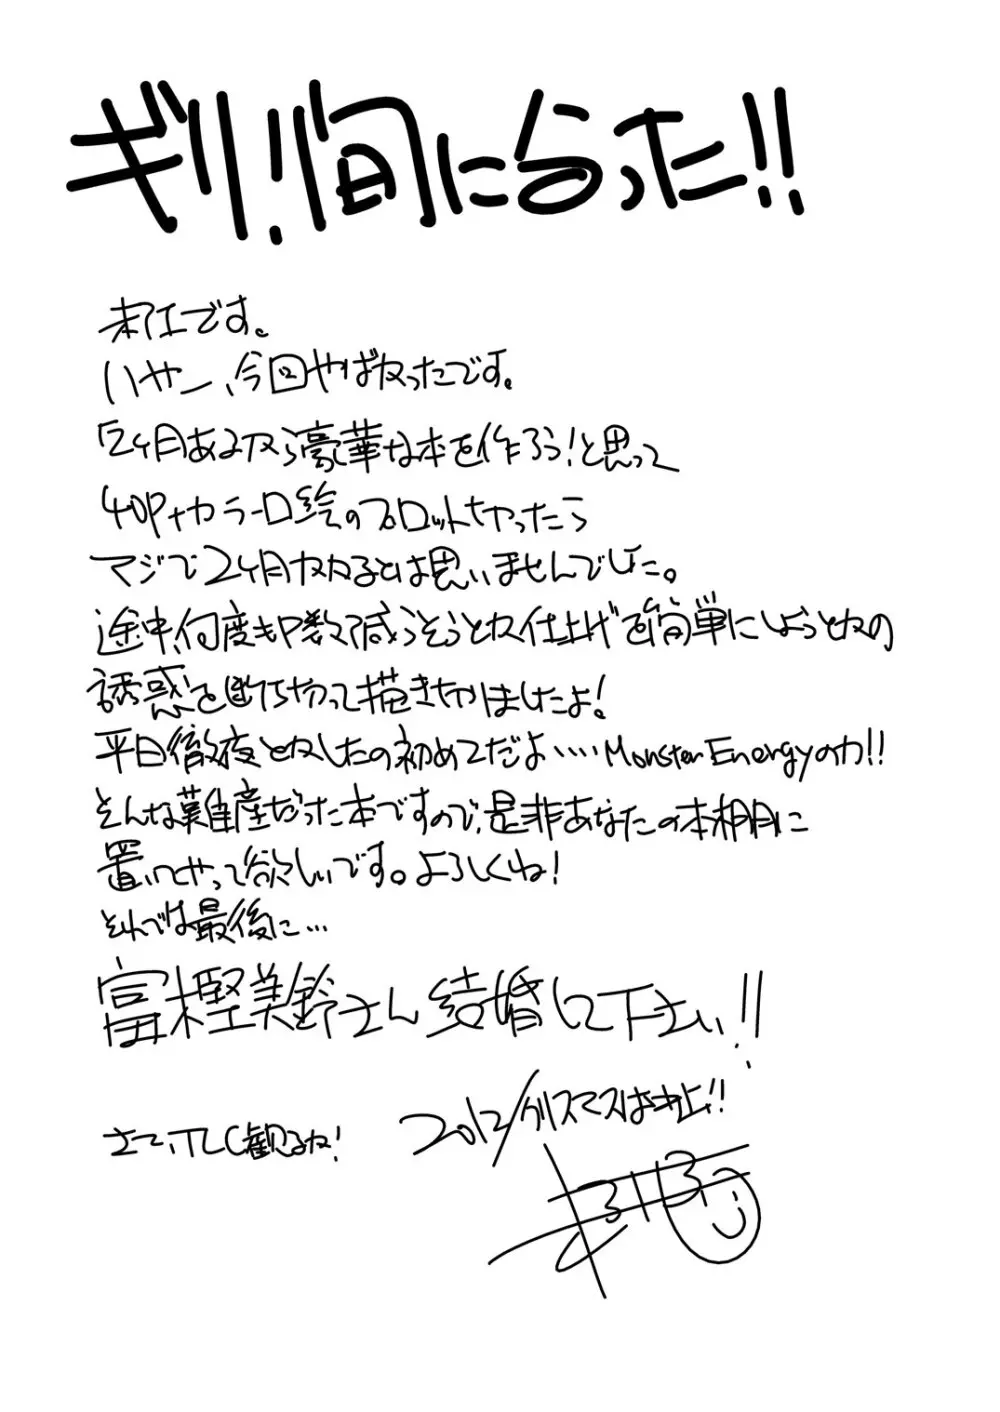 ギリ!間に合った!!
朱江です。
いやー、今回やばかったです。
「2ヶ月あるから豪華な本を作ろう!と思って
40P+カラー口絵のプロットをやったら
マジで2ヶ月かかるとは思いませんでした。
途中、何度もP数減らそうとか仕上げを簡単にしようとかの
誘惑を断ち切って描ききりましたよ!
平日徹夜とかしたの初めてだよ‥‥Monster Energyの力!!
そんな難産だった本ですので、是非あなたの本棚に
置いてやって欲しいです。よろしくね!
それでは最後に…
富樫美鈴さん結婚して下さい!!
さて、TLC観るね!
2012/クリスマスは中止!!